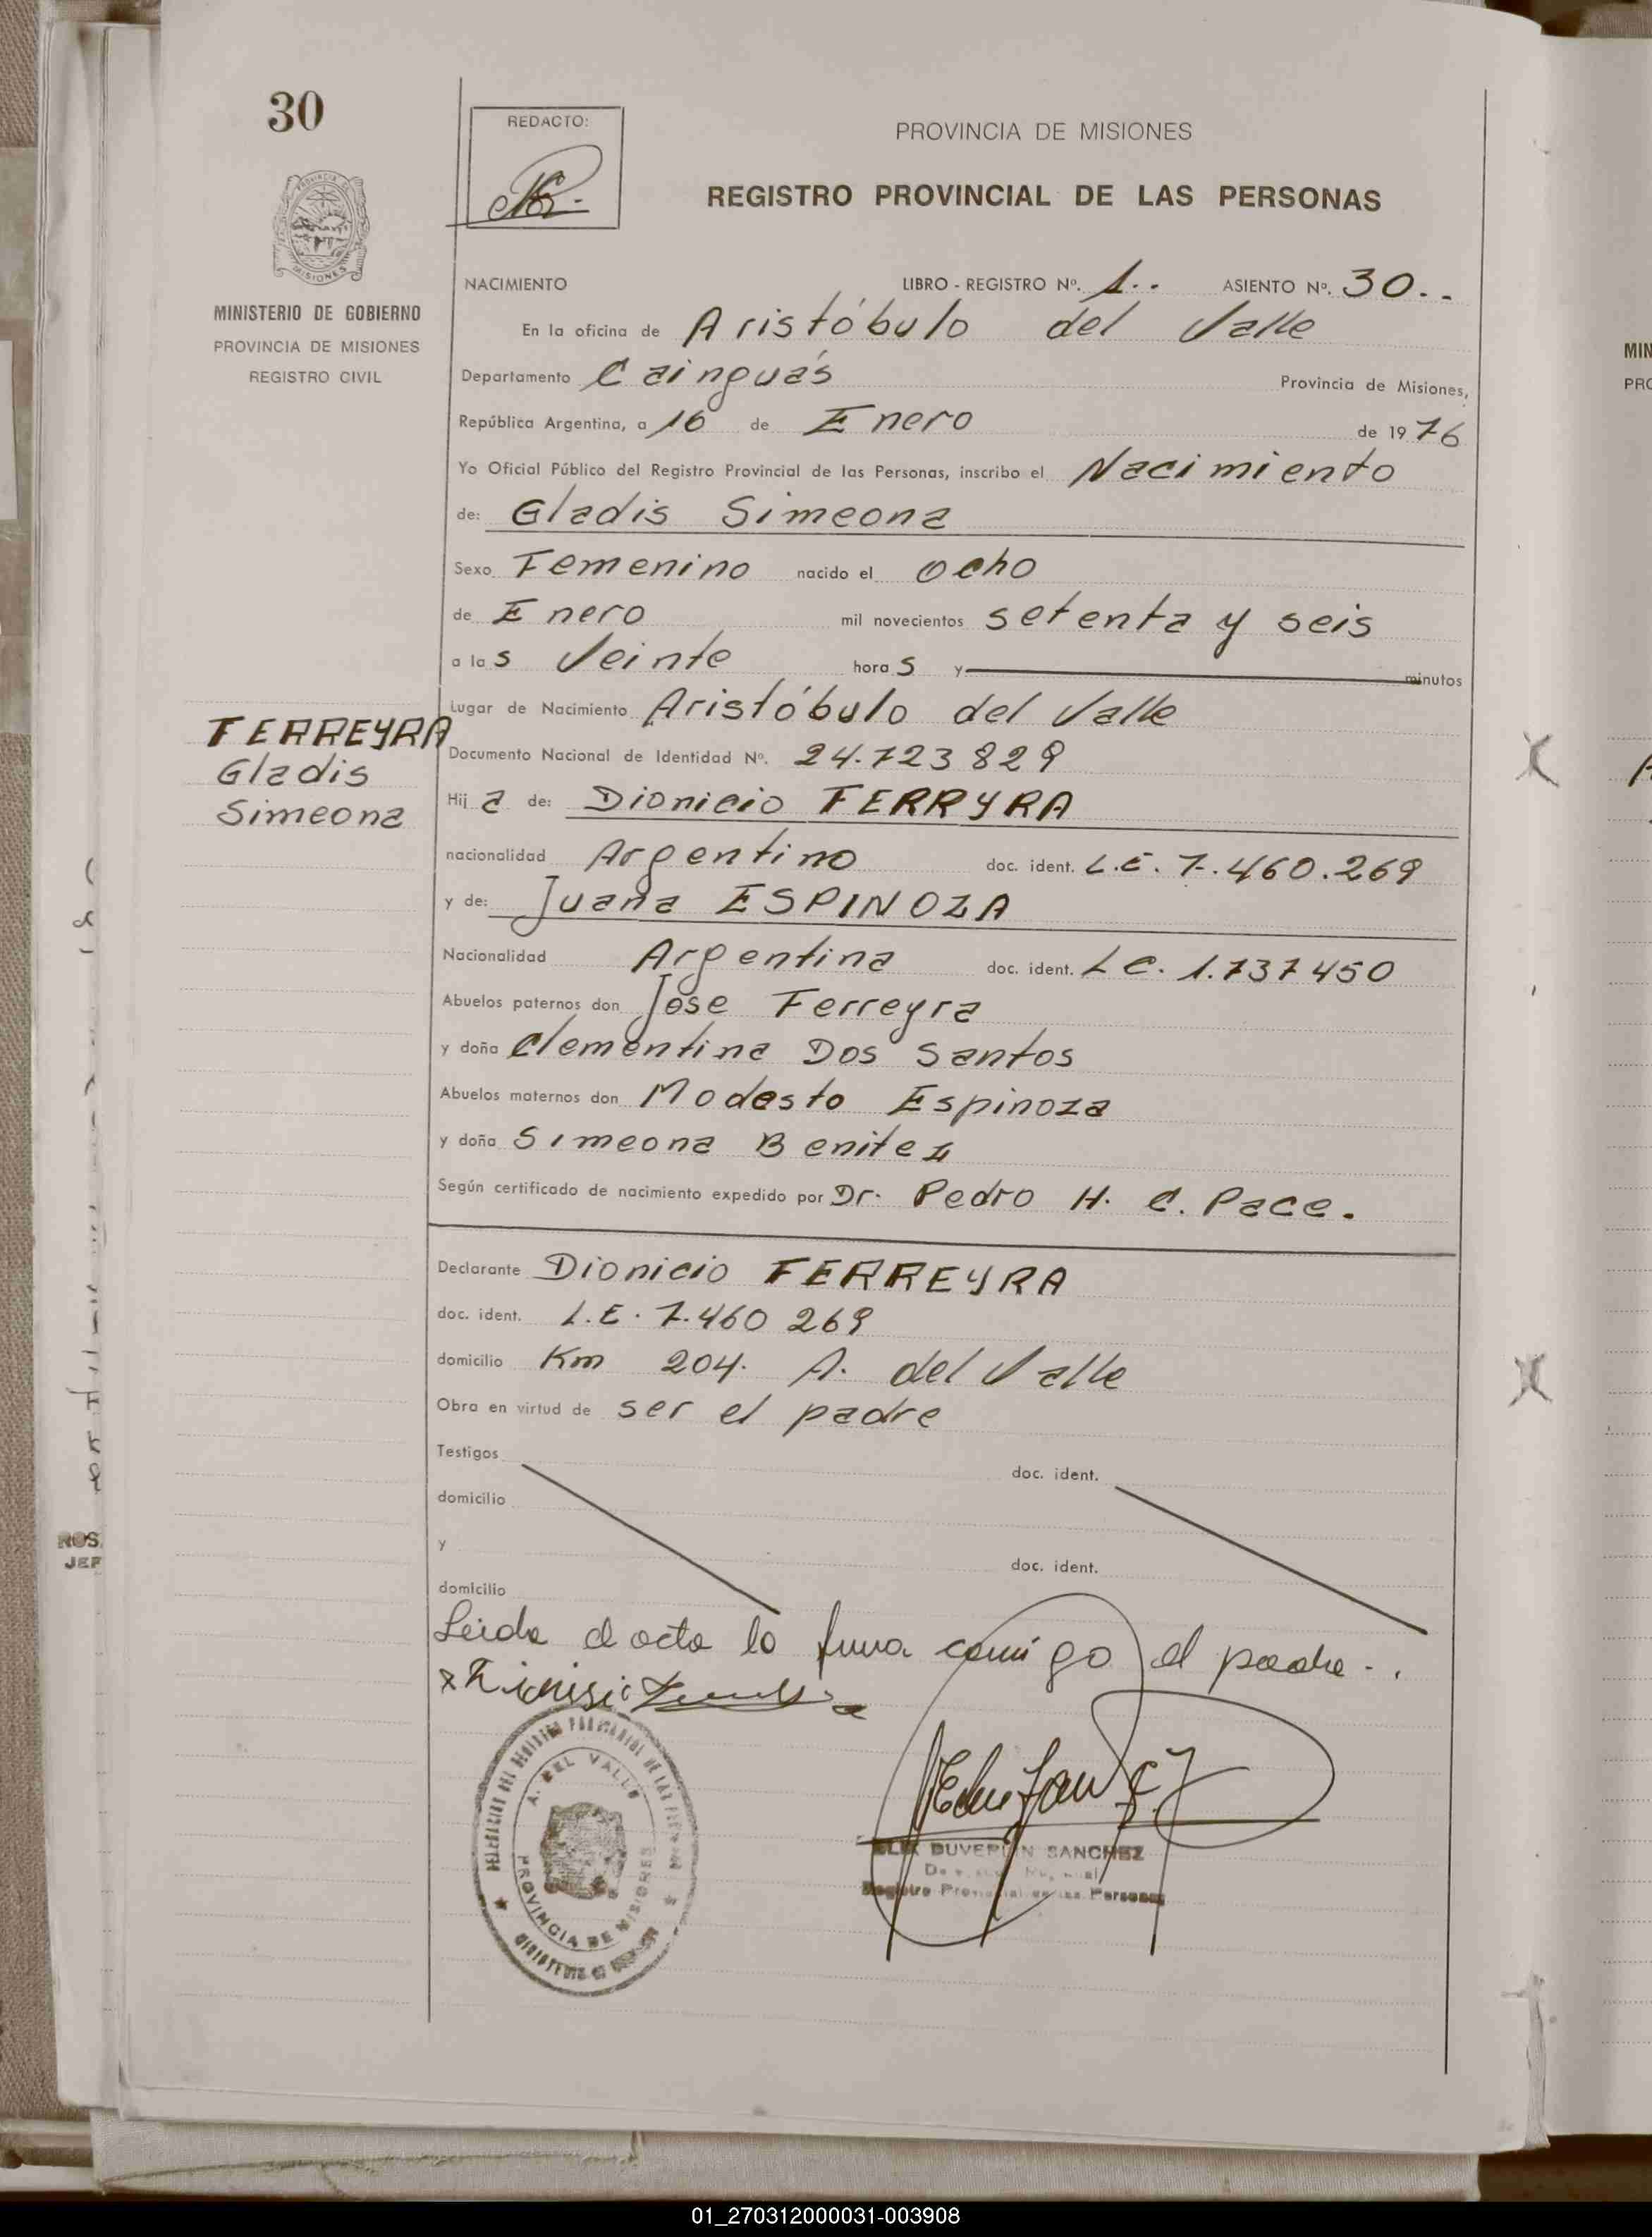 30
REDACTO:
PROVINCIA DE MISIONES
REGISTRO PROVINCIAL DE LAS PERSONAS
MINISTERIO DE GOBIERNO
PROVINCIA DE MISIONES
REGISTRO CIVIL
NACIMIENTO LIBRO - REGISTRO Nº. 1.. ASIENTO Nº. 30..
En la oficina de Aristóbulo del Valle
Departamento Cainguás Provincia de Misiones,
República Argentina, a 16 de Enero de 1976
Yo Oficial Público del Registro Provincial de las Personas, inscribo el Nacimiento
de: Gladis Simeona
Sexo Femenino nacido el ocho
de Enero mil novecientos setenta y seis
a las Veinte horas y minutos
Lugar de Nacimiento Aristóbulo del Valle
FERREYRA
Gladis
Simeona
Documento Nacional de Identidad Nº. 24.723829
Hija de: Dionicio FERRYRA
nacionalidad Argentino doc. ident. L.E. 7.460.269
y de: Juana ESPINOZA
Nacionalidad Argentina doc. ident. L C. 1.737450
Abuelos paternos don Jose Ferreyra
y doña Clementina Dos Santos
Abuelos maternos don Modesto Espinoza
y doña Simeona Benitez
Según certificado de nacimiento expedido por Dr. Pedro H. C. Pace.
Declarante Dionicio FERREYRA
doc. ident. L.E. 7.460 269
domicilio Km 204. A. del Valle
Obra en virtud de ser el padre
Testigos doc. ident.
domicilio
y doc. ident.
domicilio
Leida el acta la firma conmigo el padre..
A. DEL VALLE
PROVINCIA DE MISIONES
SANCHEZ
Registro Provincial de las Personas
ROS
JEF
MIN
PRO
01_270312000031-003908